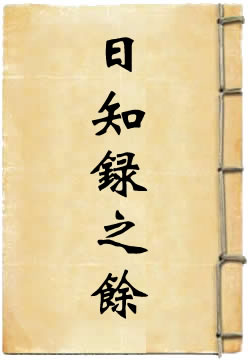 日知録之餘